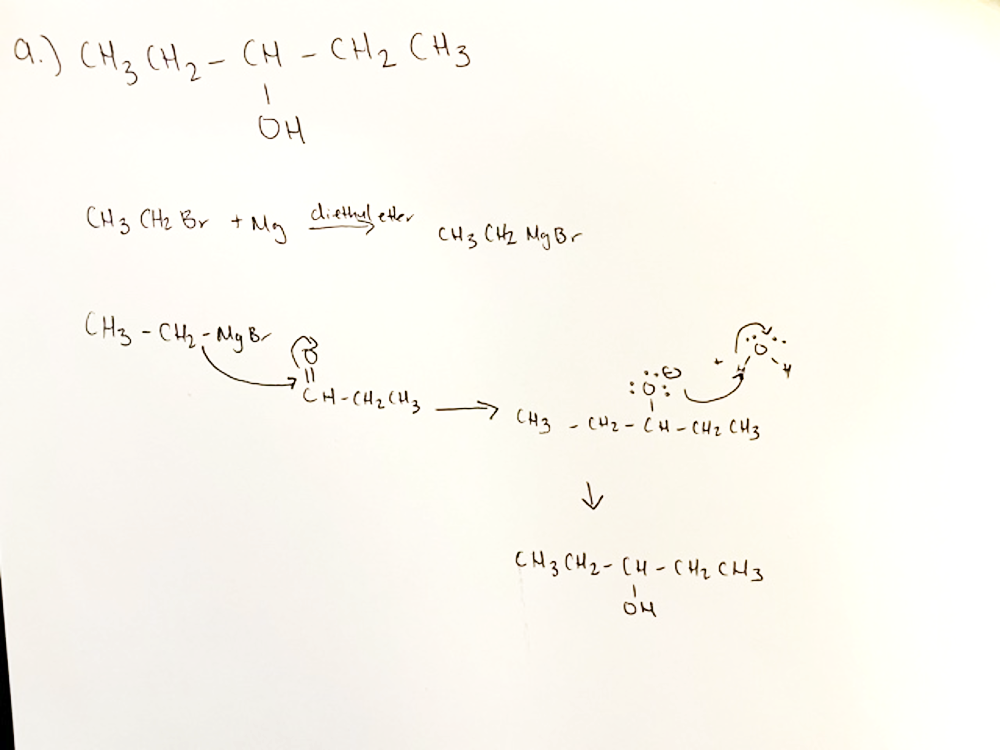 a.) CH3 CH2 – CH – CH2 CH3
OH
CH3 CH2 Br + Mg diethyl ether → CH3 CH2 MgBr
CH3 – CH2 – MgBr
O
CH – CH2 CH3 →
:O: ⊖ + H O H
CH3 – CH2 – CH – CH2 CH3
↓
CH3 CH2 – CH – CH2 CH3
OH